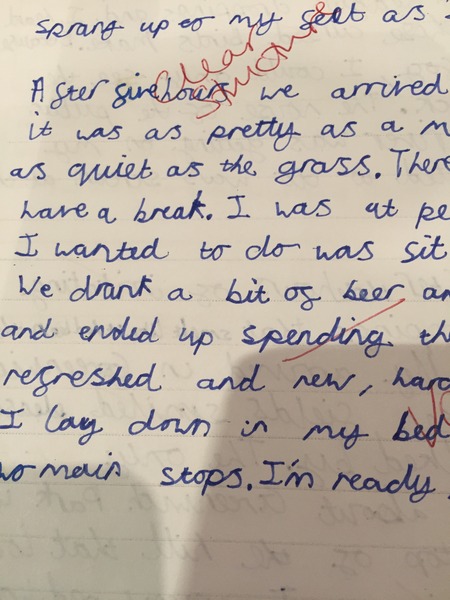 sprang up to my feet as
Clear
After five hours we arrived
it was as pretty as a m
as quiet as the grass. There
have a break. I was at pe
I wanted to do was sit
We drank a bit of beer an
and ended up spending th
refreshed and new, hard
I lay down in my bed
wo main stops. I'm ready